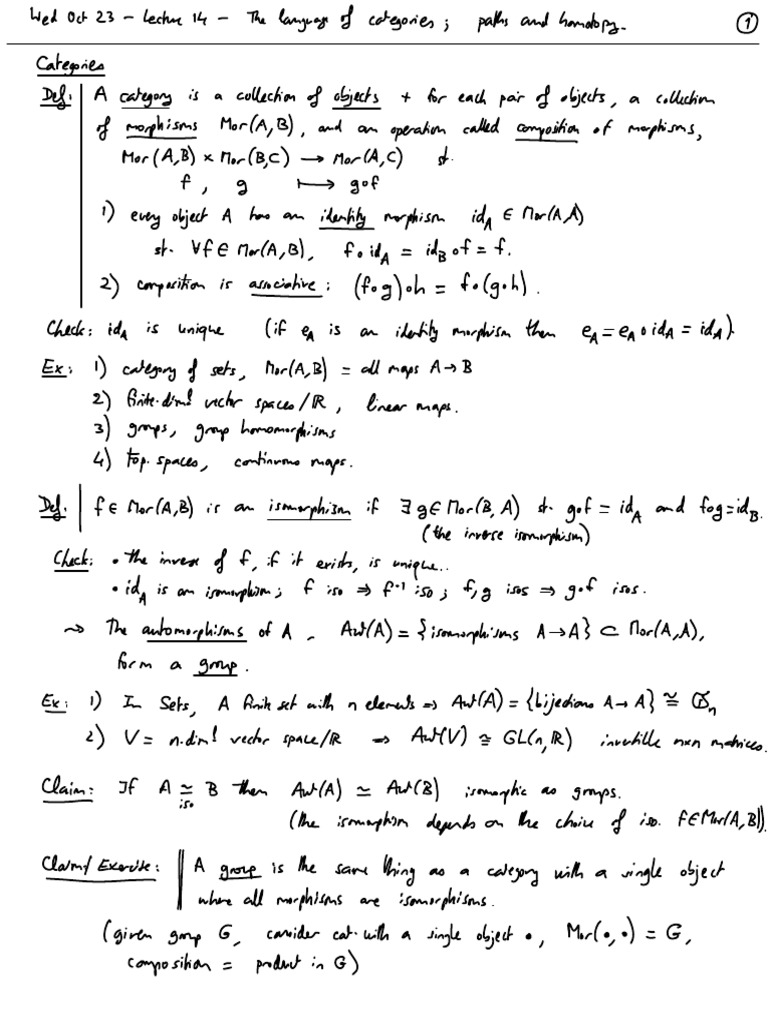 Wed Oct 23 - Lecture 14 - The language of categories; paths and homotopy. ①
Categories
Def: A category is a collection of objects + for each pair of objects, a collection
of morphisms Mor(A,B), and an operation called composition of morphisms,
Mor(A,B) × Mor(B,C) → Mor(A,C) st.
f , g ↦ g∘f
1) every object A has an identity morphism id_A ∈ Mor(A,A)
st. ∀f ∈ Mor(A,B), f∘id_A = id_B∘f = f.
2) composition is associative: (f∘g)∘h = f∘(g∘h).
Check: id_A is unique (if e_A is an identity morphism then e_A = e_A∘id_A = id_A).
Ex: 1) category of sets, Mor(A,B) = all maps A→B
2) finite-diml vector spaces/ℝ, linear maps.
3) groups, group homomorphisms
4) top. spaces, continuous maps.
Def: f ∈ Mor(A,B) is an isomorphism if ∃ g ∈ Mor(B,A) st. g∘f = id_A and f∘g = id_B.
(the inverse isomorphism)
Check: • the inverse of f, if it exists, is unique..
• id_A is an isomorphism; f iso ⇒ f⁻¹ iso; f,g isos ⇒ g∘f isos.
⤳ The automorphisms of A, Aut(A) = {isomorphisms A→A} ⊂ Mor(A,A),
form a group.
Ex: 1) In Sets, A finite set with n elements ⇒ Aut(A) = {bijections A→A} ≅ 𝔖_n
2) V = n-diml vector space/ℝ ⇒ Aut(V) ≅ GL(n,ℝ) invertible n×n matrices.
Claim: If A ≃ B then Aut(A) ≃ Aut(B) isomorphic as groups.
iso
(the isomorphism depends on the choice of iso. f∈Mor(A,B)).
Claim/Exercise: A group is the same thing as a category with a single object
where all morphisms are isomorphisms.
(given group G, consider cat. with a single object •, Mor(•,•) = G,
composition = product in G)